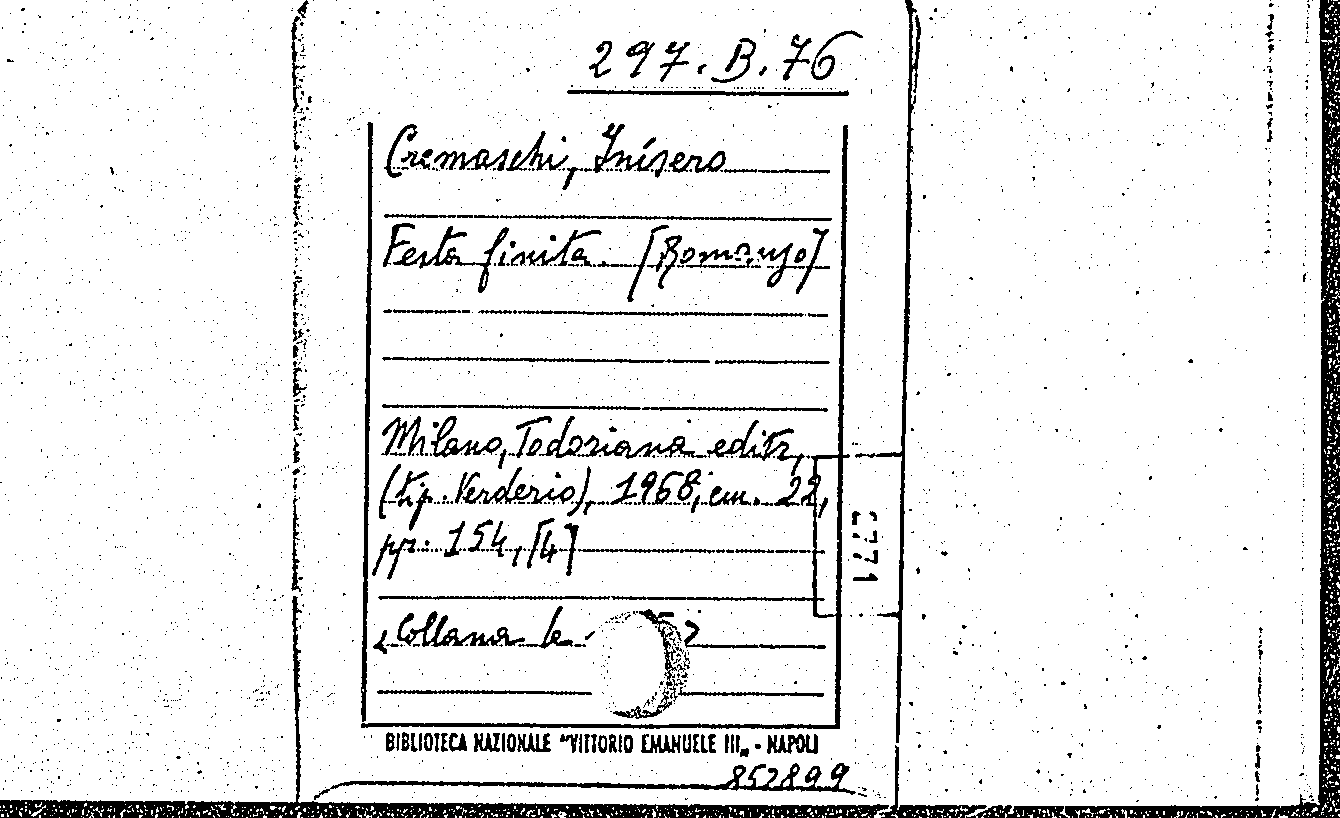 297.B.76
Cremaschi, Inísero
Festa finita. [Romanzo]
Milano, Todoriana editr,
(tip. Verderio), 1968, cm. 22,
pp. 154, [4]
1771
<Collana le
BIBLIOTECA NAZIONALE "VITTORIO EMANUELE III„ - NAPOLI
852899